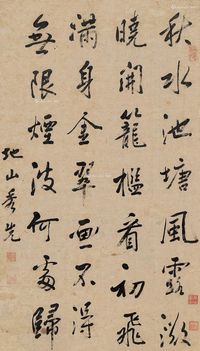 秋水池塘風露微
曉開籠檻看初飛
滿身金翠画不得
無限煙波何處歸
地山秀先